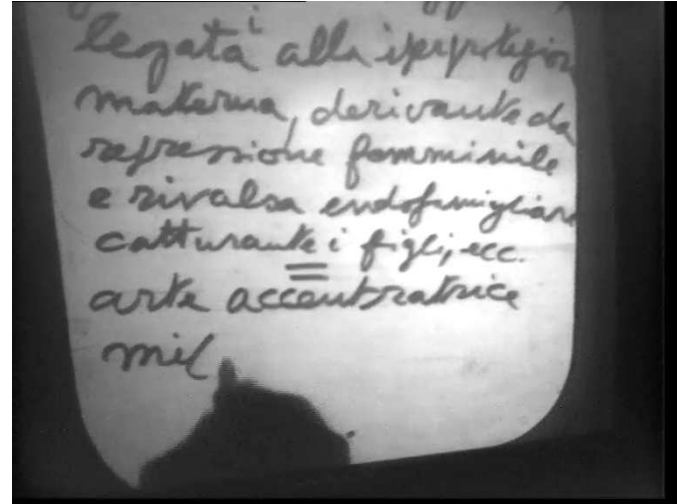 legata alla iperprotezion
materna, derivante da
repressione femminile
e rivalsa endofamigliare
catturante i figli, ecc.
=
arte accentratrice
mil